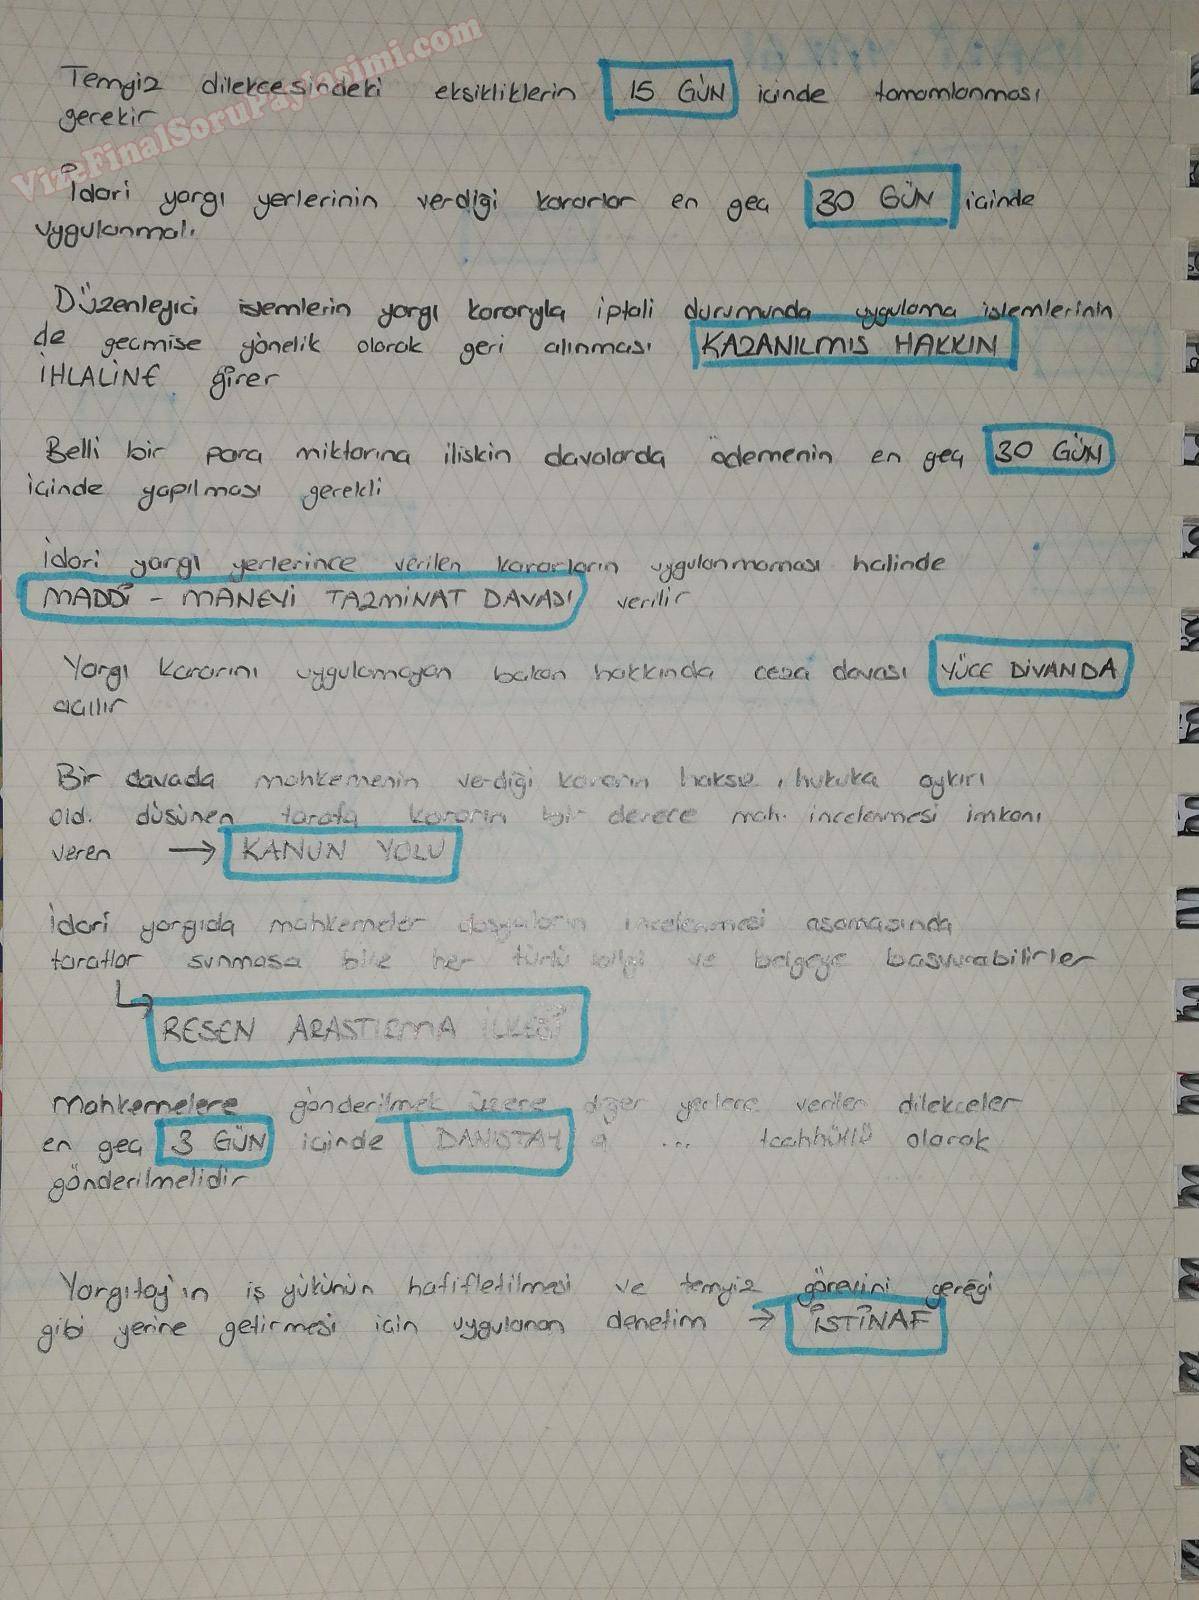 VizeFinalSoruPaylasimi.com
Temyiz dilekcesindeki eksikliklerin 15 GÜN icinde tamamlanması
gerekir
İdari yargı yerlerinin verdiği kararlar en geç 30 GÜN icinde
uygulanmalı
Düzenleyici islemlerin yargı kararıyla iptali durumunda uygulama islemlerinin
de gecmise yönelik olarak geri alınması KAZANILMIS HAKKIN
İHLALİNE girer
Belli bir para miktarına iliskin davalarda ödemenin en geç 30 GÜN
içinde yapılması gerekli
İdari yargı yerlerince verilen kararların uygulanmaması halinde
MADDİ - MANEVİ TAZMİNAT DAVASI verilir
Yargı kararını uygulamayan bakan hakkında ceza davası YÜCE DİVANDA
acılır
Bir davada mahkemenin verdiği kararın haksız, hukuka aykırı
old. düsünen tarafa kararın bir derece mah. incelenmesi imkanı
veren → KANUN YOLU
İdari yargıda mahkemeler dosyaların incelenmesi asamasında
taraflar sunmasa bile her türlü bilgi ve belgeye basvurabilirler
RESEN ARASTIRMA İLKESİ
Mahkemelere gönderilmek üzere diğer yerlere verilen dilekceler
en geç 3 GÜN icinde DANISTAY a ... taahhütlü olarak
gönderilmelidir
Yargıtay'ın iş yükünün hafifletilmesi ve temyiz görevini gereği
gibi yerine getirmesi için uygulanan denetim → İSTİNAF